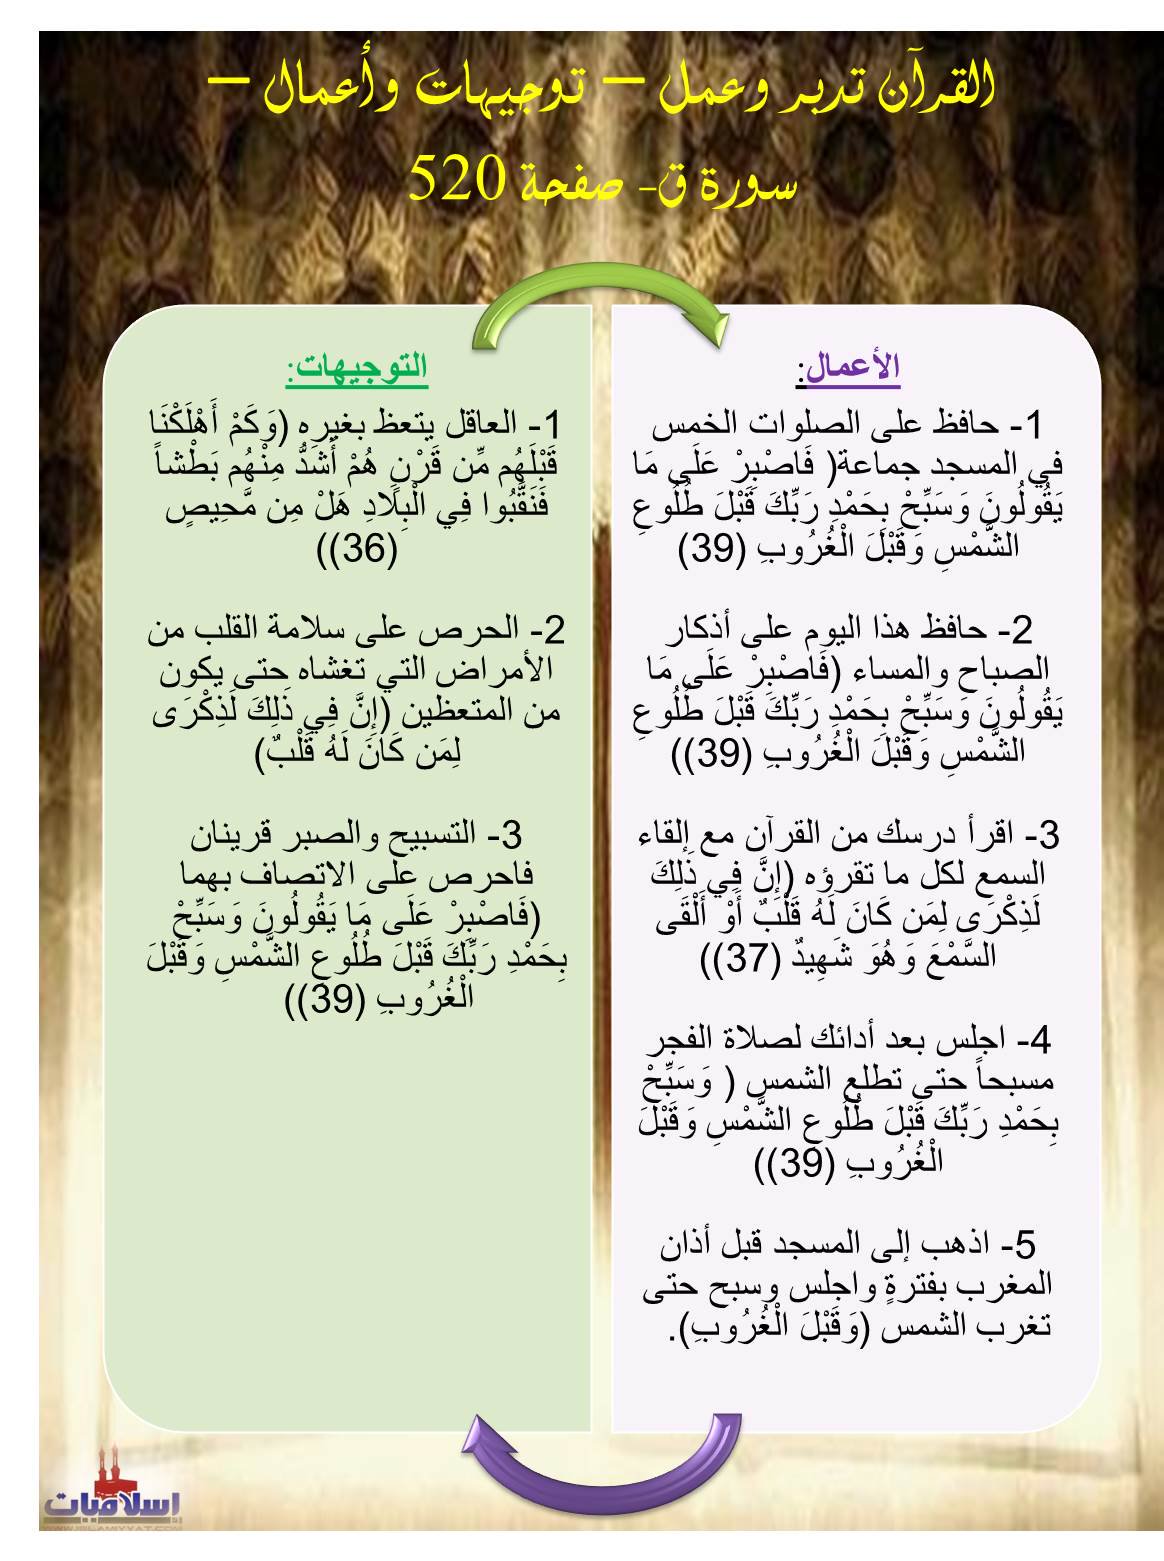 القرآن تدبر وعمل – توجيهات وأعمال –
سورة ق- صفحة 520
الأعمال:
1- حافظ على الصلوات الخمس
في المسجد جماعة( فَاصْبِرْ عَلَى مَا
يَقُولُونَ وَسَبِّحْ بِحَمْدِ رَبِّكَ قَبْلَ طُلُوعِ
الشَّمْسِ وَقَبْلَ الْغُرُوبِ (39)
2- حافظ هذا اليوم على أذكار
الصباح والمساء (فَاصْبِرْ عَلَى مَا
يَقُولُونَ وَسَبِّحْ بِحَمْدِ رَبِّكَ قَبْلَ طُلُوعِ
الشَّمْسِ وَقَبْلَ الْغُرُوبِ (39))
3- اقرأ درسك من القرآن مع إلقاء
السمع لكل ما تقرؤه (إِنَّ فِي ذَلِكَ
لَذِكْرَى لِمَن كَانَ لَهُ قَلْبٌ أَوْ أَلْقَى
السَّمْعَ وَهُوَ شَهِيدٌ (37))
4- اجلس بعد أدائك لصلاة الفجر
مسبحاً حتى تطلع الشمس ( وَسَبِّحْ
بِحَمْدِ رَبِّكَ قَبْلَ طُلُوعِ الشَّمْسِ وَقَبْلَ
الْغُرُوبِ (39))
5- اذهب إلى المسجد قبل أذان
المغرب بفترةٍ واجلس وسبح حتى
تغرب الشمس (وَقَبْلَ الْغُرُوبِ).
التوجيهات:
1- العاقل يتعظ بغيره (وَكَمْ أَهْلَكْنَا
قَبْلَهُم مِّن قَرْنٍ هُمْ أَشَدُّ مِنْهُم بَطْشاً
فَنَقَّبُوا فِي الْبِلَادِ هَلْ مِن مَّحِيصٍ
(36))
2- الحرص على سلامة القلب من
الأمراض التي تغشاه حتى يكون
من المتعظين (إِنَّ فِي ذَلِكَ لَذِكْرَى
لِمَن كَانَ لَهُ قَلْبٌ)
3- التسبيح والصبر قرينان
فاحرص على الاتصاف بهما
(فَاصْبِرْ عَلَى مَا يَقُولُونَ وَسَبِّحْ
بِحَمْدِ رَبِّكَ قَبْلَ طُلُوعِ الشَّمْسِ وَقَبْلَ
الْغُرُوبِ (39))
إسلاميات
WWW.ISLAMIYYAT.COM